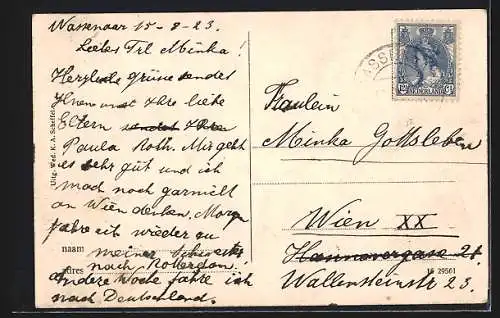 Wassenaar 15-8-23.
Liebes Frl Minka!
Herzliche Grüsse sendet
Ihnen und Ihre liebe
Eltern sendet Ihre
Paula Roth. Mir geht
es sehr gut und ich
mad noch garnicht
an Wien denken. Morgen
fahre ich wieder zu
meiner Schwester
nach Rotterdam.
andere Woche fahre ich
nach Deutschland.
naam
adres
Uitg. Wed. K. A. Scheffel
WASSE
12½ Ct
NEDERLAND
Fräulein
Minka Gottsleben
Wien XX
Hannovergasse 21.
Wallensteinstr 23.
15 29561